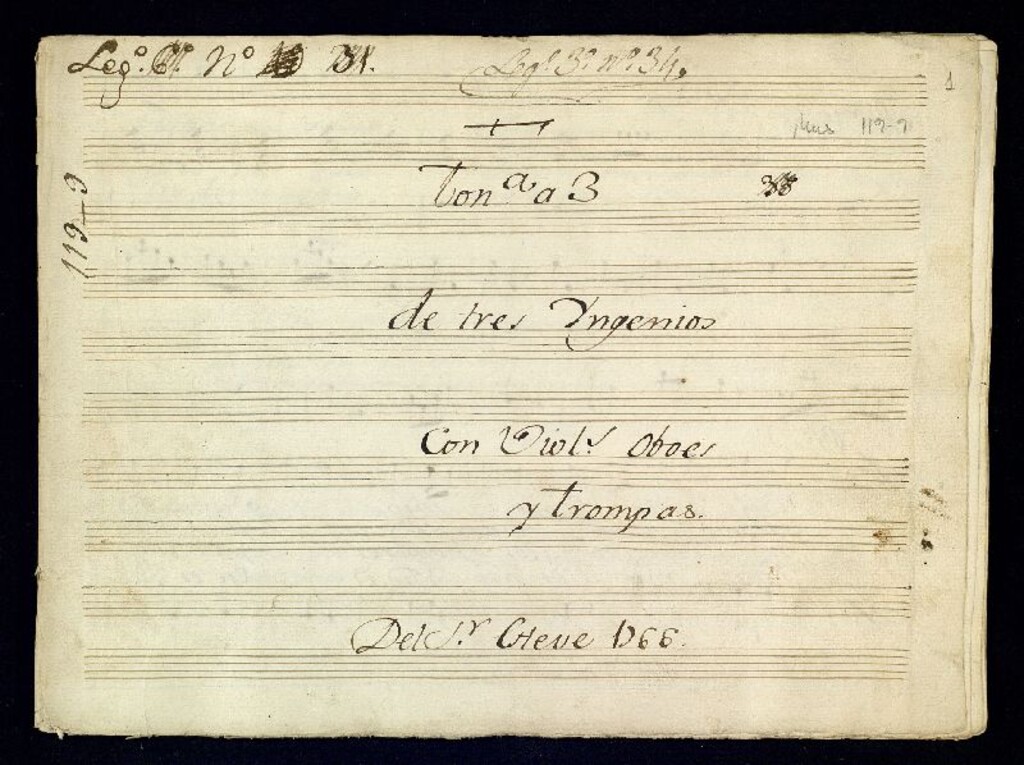 Leg.º 6º. Nº 34.
Leg.º 3º nº 34.
1
Mus 119-9
119-9
Ton.ª a 3
de tres Yngenios
Con Viol.s Oboes
y trompas.
Del S.r Esteve 1766.